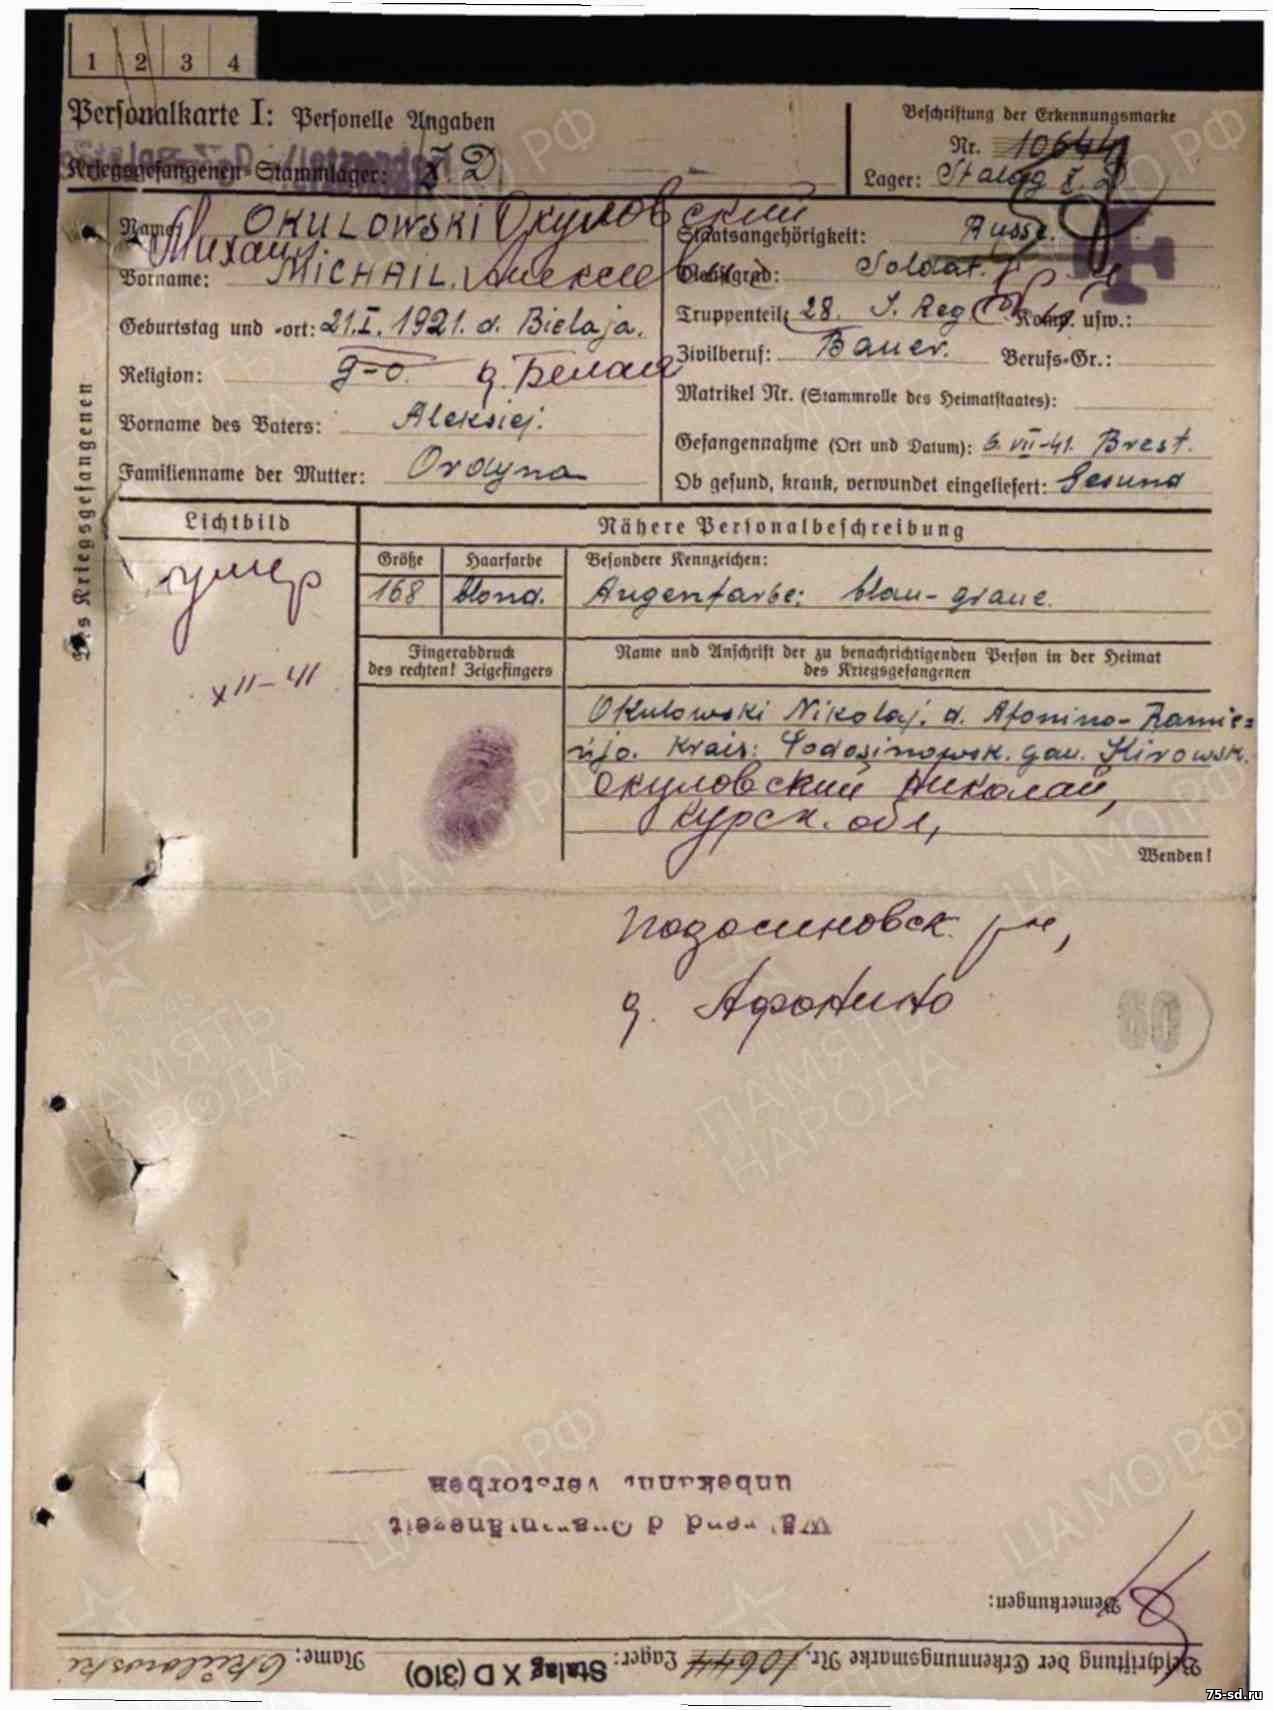 1 2 3 4
Personalkarte I: Personelle Angaben
Kriegsgefangenen-Stammlager: X D
Beschriftung der Erkennungsmarke
Nr. 10644
Lager: Stalag X D
Des Kriegsgefangenen
Name: OKULOWSKI Окуловский
Михаил
Vorname: MICHAIL. Алексеевич
Geburtstag und -ort: 21.I.1921. d. Bielaja.
Religion: g-o. д. Белая
Vorname des Vaters: Aleksiej.
Familienname der Mutter: Ordyna
Staatsangehörigkeit: Russe.
Dienstgrad: Soldat.
Truppenteil: 28. J. Reg Komp. usw.:
Zivilberuf: Bauer. Berufs-Gr.:
Matrikel Nr. (Stammrolle des Heimatstaates):
Gefangennahme (Ort und Datum): 6.VII-41. Brest.
Ob gesund, krank, verwundet eingeliefert: Gesund
Lichtbild
умер
XII-41
Nähere Personalbeschreibung
Größe Haarfarbe Besondere Kennzeichen:
168 blond. Augenfarbe: blau-graue.
Fingerabdruck
des rechten! Zeigefingers
Name und Anschrift der zu benachrichtigenden Person in der Heimat
des Kriegsgefangenen
Okulowski Nikolaj. d. Afonino-Zamie=
njo. Krais: Podosinowsk. gau. Kirowsk.
Окуловский Николай,
Курск. обл,
Wenden!
Подосиновск. р-н,
д. Афонино
60
Während d Quarantänezeit
unbekannt verstorben
Bemerkungen:
Beschriftung der Erkennungsmarke Nr. 10644 Lager: Stalag X D (310) Name: Okulowski
ЦАМО.РФ
ПАМЯТЬ
НАРОДА
75-sd.ru